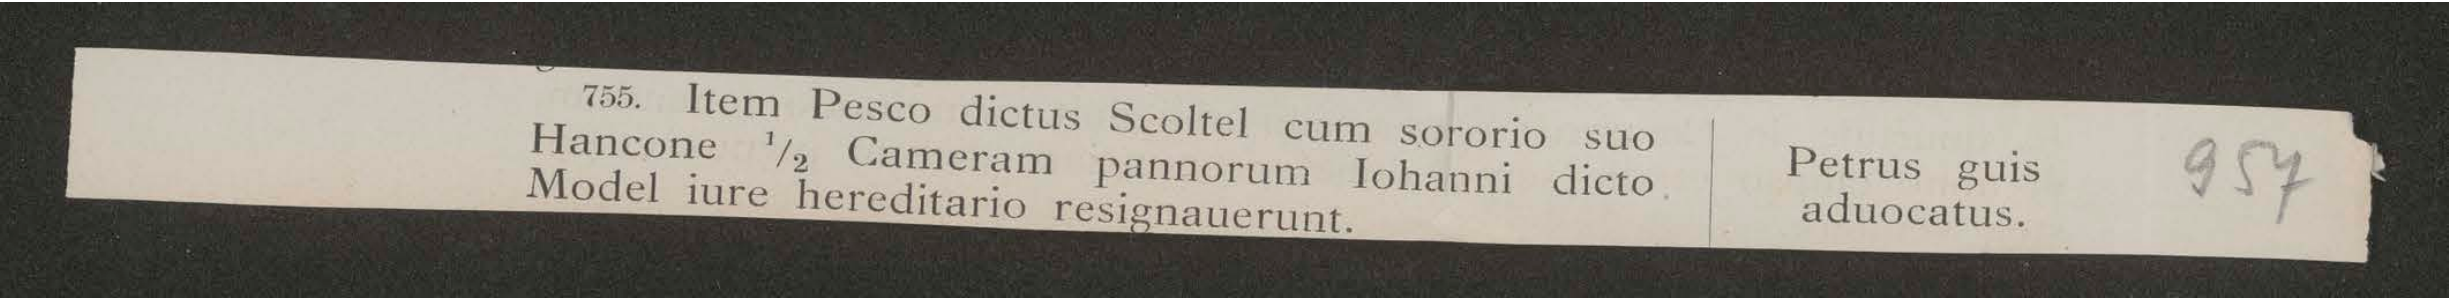 755. Item Pesco dictus Scoltel cum sororio suo
Hancone 1/2 Cameram pannorum Iohanni dicto
Model iure hereditario resignauerunt.
Petrus guis
aduocatus.
957